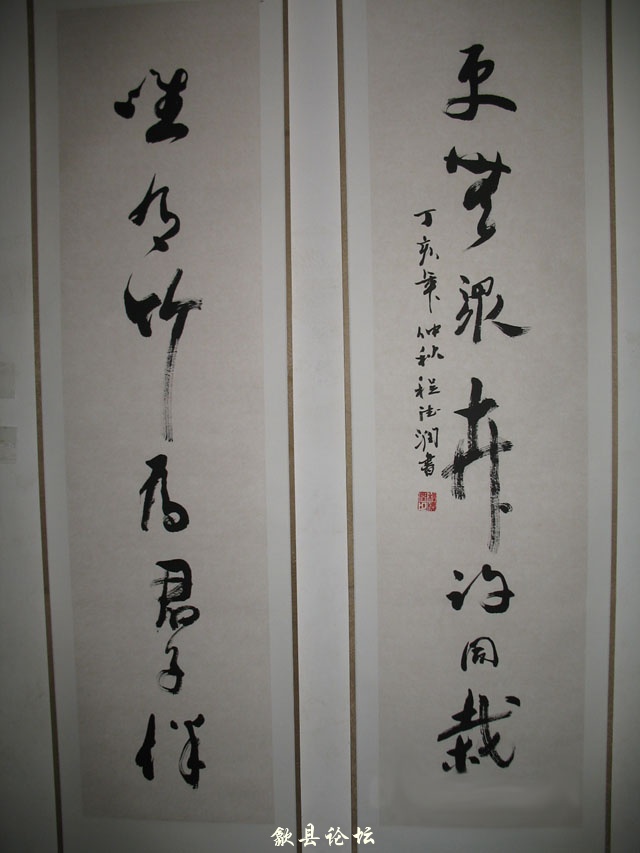 唯有竹為君子伴
更無眾卉許同栽
丁亥年仲秋程德潤書
歙县论坛